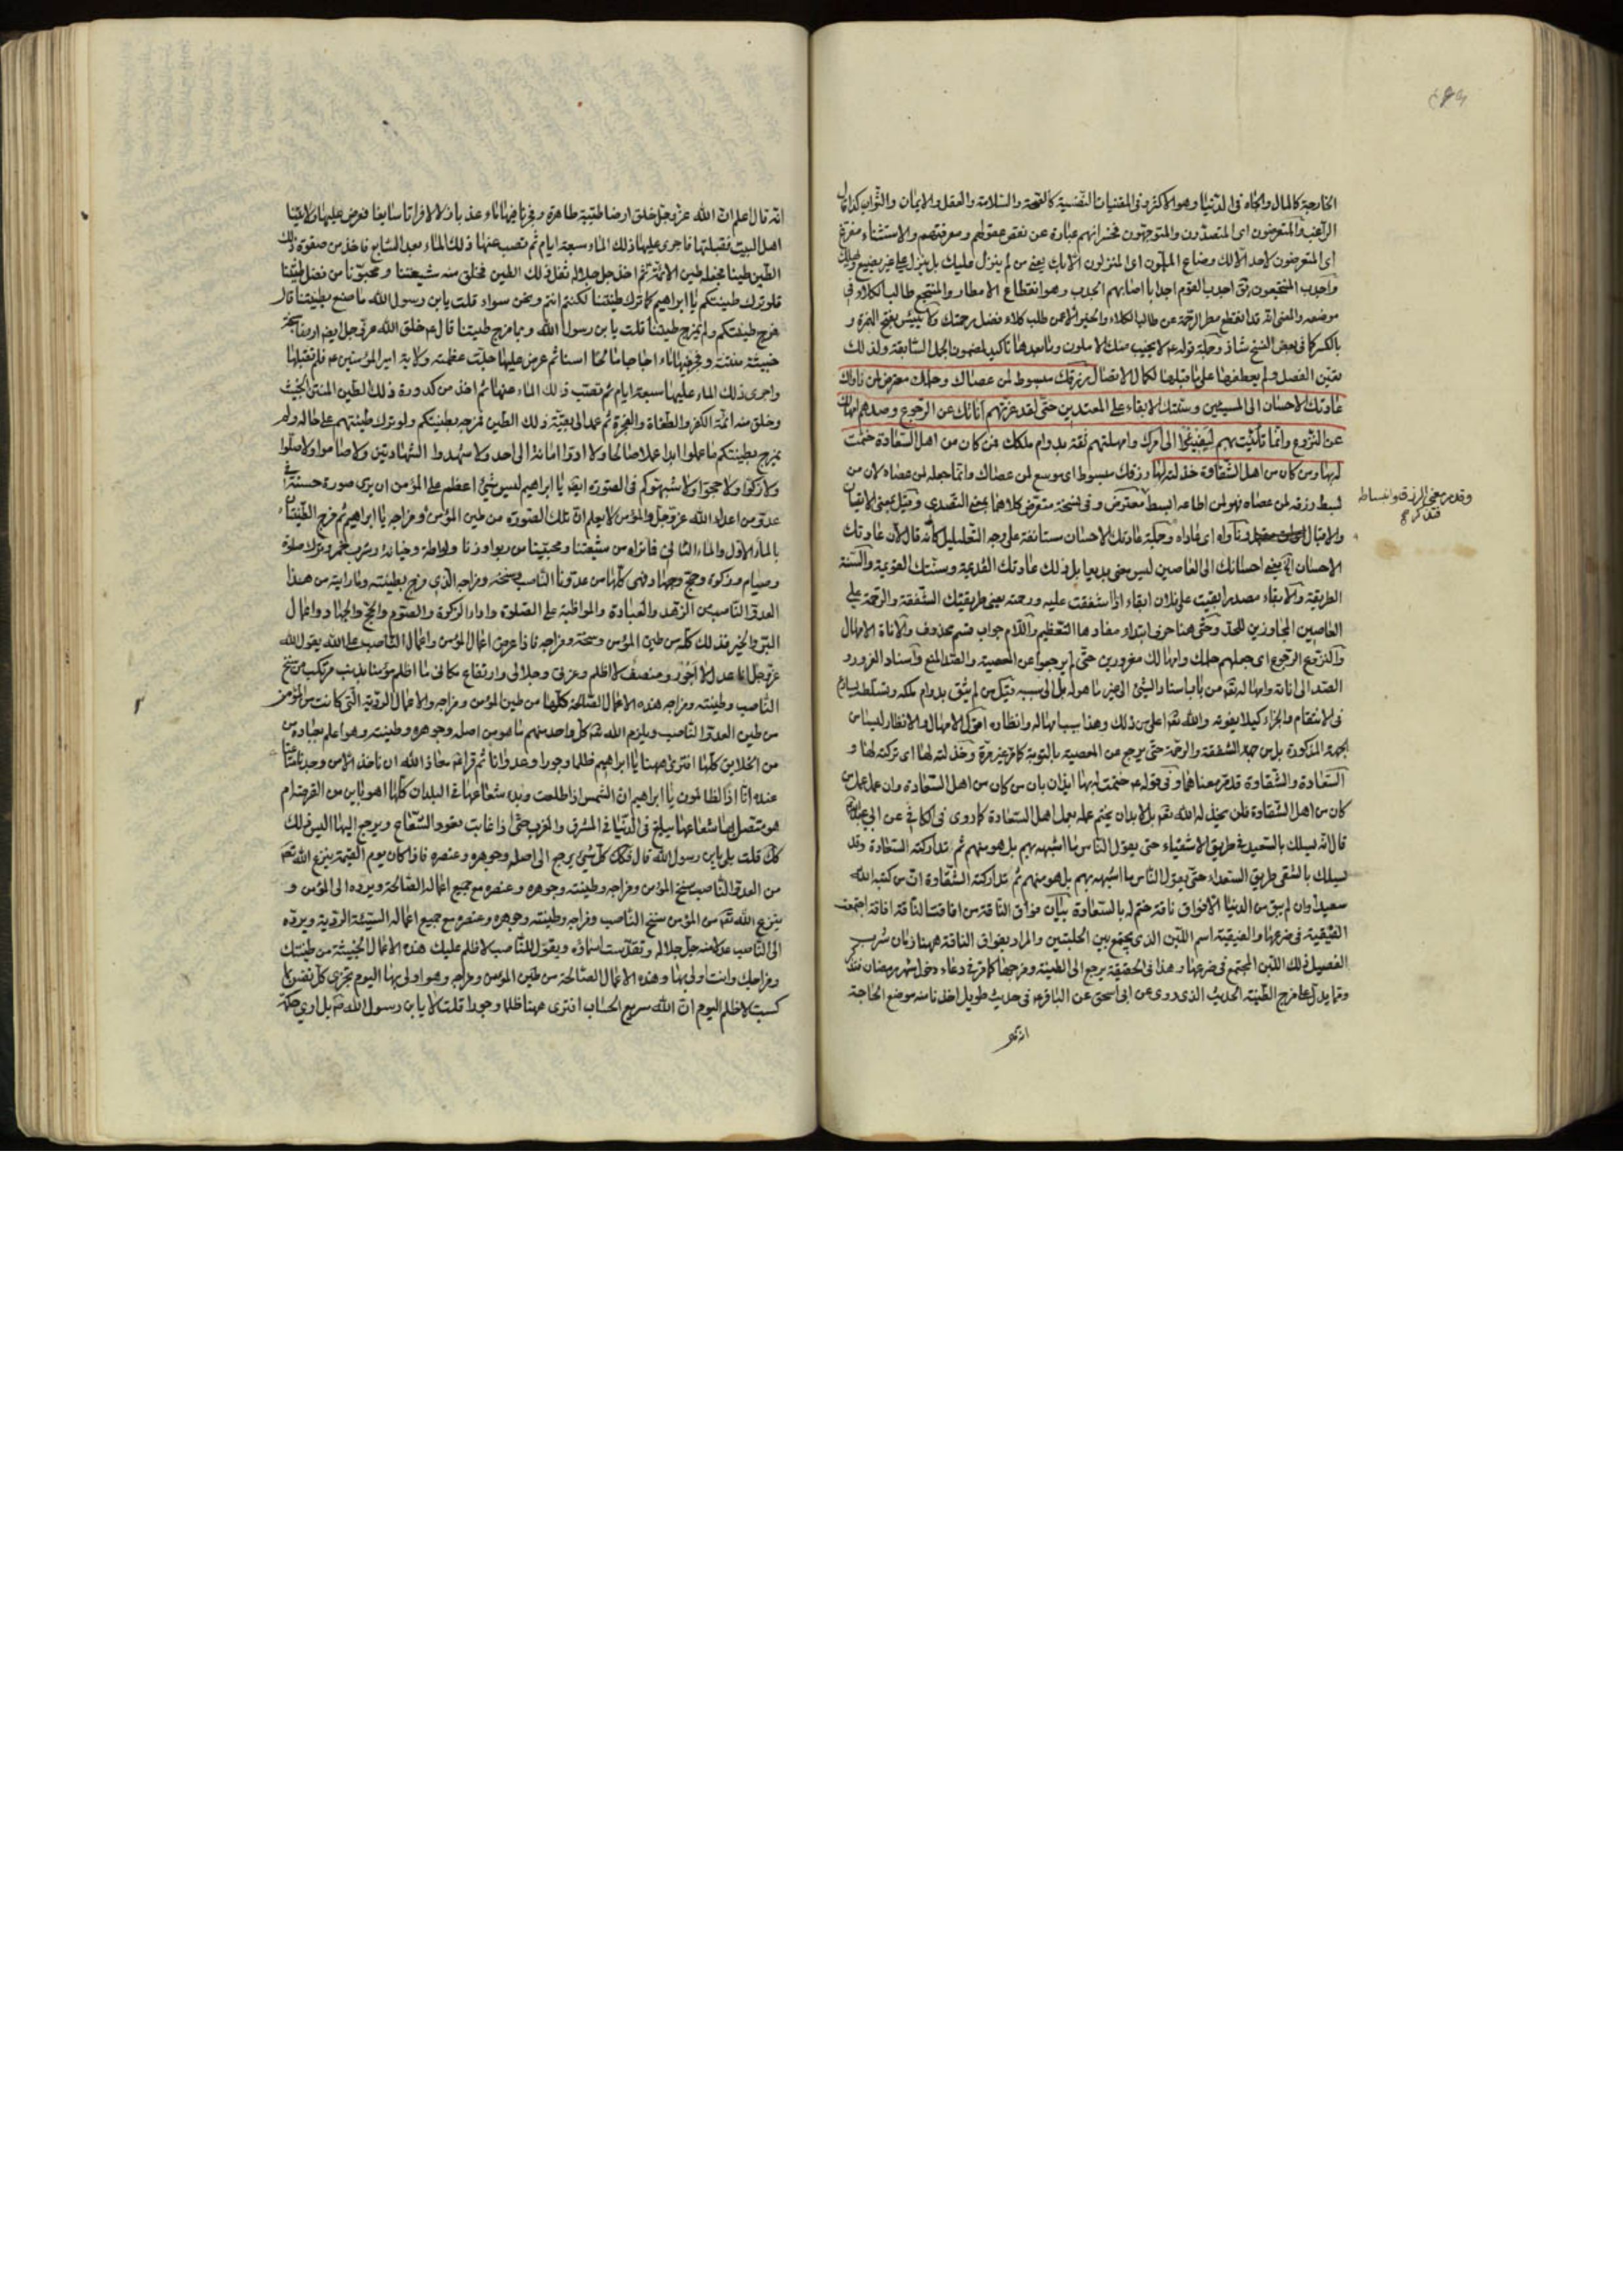 الخارجية كالمال والجاه في الدنيا وهو الاكثر وفي المقنيات النفسية كالصحة والسلامة والعقل والايمان والثواب كذا قال
الراغب والمتعرضون اى المتصدون والمتوجهون فخسرانهم عبارة عن نقص عقولهم ومعرفتهم والاستثناء مفرغ
اى المتعرضون لاحد الا لك وضاع الملمون اى المنزلون الا بك يعنى من لم ينزل عليك بل ينزل على غيرك يضيع ويهلك
واجدب المنتجعون من اجدب القوم اجدابا اصابهم الجدب وهو انقطاع الامطار والمنتجع طالب الكلاء في
موضعه والمعنى انه قد انقطع مطر الرحمة عن طالب الكلاء والخير الا عمن طلب كلاء فضل رحمتك
بالكسر كما في بعض النسخ شاذ وجملة قوله ع لا يخيب منك الاملون وما بعدها تاكيد لمضمون الجمل السابقة ولذلك
تعين الفصل ولم يعطفها على ما قبلها لكمال الاتصال رزقك مبسوط لمن عصاك وحلمك معترض لمن ناواك
عادتك الاحسان الى المسيئين وسنتك الابقاء على المعتدين حتى لقد غرتهم اناتك عن الرجوع وصدهم امهالك
عن النزوع وانما تأنيت بهم ليفيئوا الى امرك وامهلتهم ثقة بدوام ملكك فمن كان من اهل السعادة ختمت
له بها ومن كان من اهل الشقاوة خذلته لها رزقك مبسوط اى موسع لمن عصاك وانما جعله لمن عصاه لان من
بسط رزقه لمن عصاه فهو لمن اطاعه ابسط معترض وفي نسخة متعرض كلاهما بمعنى التصدى وقيل بمعنى الاتيان
والاقبال وناواه اى عاداه وجملة عادتك الاحسان مستانفة على وجه التعليل كأنه قال لان عادتك
الاحسان الخ يعنى احسانك الى العاصين ليس بمعنى بديعا بل ذلك عادتك القديمة وسنتك القويمة والسنة
الطريقة والابقاء مصدر ابقيت على فلان ابقاء اذا اشفقت عليه ورحمته يعنى طريقتك الشفقة والرحمة على
العاصين المجاوزين للحد وحتى هنا حرف ابتداء مفادها التعظيم واللام جواب قسم محذوف والاناة الامهال
والنزوع الرجوع اى جعلهم حلمك وامهالك مغرورين حتى لم يرجعوا عن المعصية والصد المنع واسناد الغرور و
الصد الى اناته وامهاله تعم من باب اسناد الشيء الى غير ما هو له بل الى سببه قيل من لم يثق بدوام ملكه وتسلطه يسارع
في الانتقام والجزاء كيلا يفوته والله تعم اعلى من ذلك وهذا سبب امهاله وانظاره اقول الامهال والانظار ليسا من
الجهة المذكورة بل من جهة الشفقة والرحمة حتى يرجع عن المعصية بالتوبة كما مر غير مرة وخذلته لها اى تركته لها و
السعادة والشقاوة قد مر معناهما وفي قوله ع ختمت له بها ايذان بان من كان من اهل السعادة وان عمل عمل من
كان من اهل الشقاوة فلن يخذله الله تعم بل لا بد ان يختم عمله بعمل اهل السعادة كما روى في الكافي عن ابي عبد الله
قال انه يسلك بالسعيد في طريق الاشقياء حتى يقول الناس ما اشبهه بهم بل هو منهم ثم تتداركه السعادة وقد
يسلك بالشقى طريق السعداء حتى يقول الناس ما اشبهه بهم بل هو منهم ثم تتداركه الشقاوة ان من كتبه الله
سعيدا وان لم يبق من الدنيا الا فواق ناقة ختم له بالسعادة بيان فواق الناقة من افاقت الناقة افاقة اجتمعت
الفيقة في ضرعها والفيقة اسم اللبن الذى يجتمع بين الحلبتين والمراد بفواق الناقة ههنا زمان شرب
الفصيل ذلك اللبن المجتمع في ضرعها وهذا في الحقيقة يرجع الى الطينة ومزجها كما مر في دعاء دخول شهر رمضان
ومما يدل على مزج الطينة الحديث الذى روى عن ابي اسحق عن الباقر ع في حديث طويل اخذنا منه موضع الحاجة
وقد مر معنى الرزق وانبساطه
انه قال اعلم ان الله عز وجل خلق ارضا طيبة طاهرة وفجر فيها ماء عذبا زلالا فراتا سايغا فعرض عليها ولايتنا
اهل البيت فقبلتها فاجرى عليها ذلك الماء سبعة ايام ثم نضب عنها ذلك الماء بعد السابع فاخذ من صفوة ذلك
الطين طينا فجعله طين الائمة ثم اخذ جل جلاله ثفل ذلك الطين فخلق منه شيعتنا ومحبونا من فضل طينتنا
فلو ترك طينتكم يا ابراهيم كما ترك طينتنا لكنتم انتم ونحن سواء قلت يا بن رسول الله ما صنع بطينتنا قال
مزج طينتكم ولم يمزج طينتنا قلت يا بن رسول الله وبما مزج طينتنا قال ع خلق الله عز وجل ايضا ارضا سبخة
خبيثة منتنة وفجر فيها ماء اجاجا مالحا اسنا ثم عرض عليها جلت عظمته ولاية امير المؤمنين ع فلم تقبلها
واجرى ذلك الماء عليها سبعة ايام ثم نضب ذلك الماء عنها ثم اخذ من كدورة ذلك الطين المنتن الخبيث
وخلق منه ائمة الكفر والطغاة والفجرة ثم عمد الى بقية ذلك الطين فمزجه بطينتكم ولو ترك طينتهم على حاله ولم
يمزج بطينتكم ما عملوا ابدا عملا صالحا ولا ادوا امانة الى احد ولا شهدوا الشهادتين ولا صاموا ولا صلوا
ولا زكوا ولا حجوا ولا شبهوكم في الصورة ايضا يا ابراهيم ليس شيء اعظم على المؤمن ان يرى صورة حسنة في
عدو من اعداء الله عز وجل والمؤمن لا يعلم ان تلك الصورة من طين المؤمن ومزاجه يا ابراهيم ثم مزج الطينتان
بالماء الاول والماء الثاني فما تراه من شيعتنا ومحبينا من ربوا وزنا ولواطة وخيانة وشرب خمر وترك صلوة
وصيام وزكوة وحج وجهاد فهي كلها من عدونا الناصب وسنخه ومزاجه الذى مزج بطينته وما رايته من هذا
العدو الناصب من الزهد والعبادة والمواظبة على الصلوة واداء الزكوة والصوم والحج والجهاد واعمال
البر والخير فذلك كله من طين المؤمن وسنخه ومزاجه فاذا عرض اعمال المؤمن واعمال الناصب على الله يقول الله
عز وجل انا عدل لا اجور ومنصف لا اظلم وعزتي وجلالى وارتفاع مكاني ما اظلم مؤمنا بذنب مرتكب من سنخ
الناصب وطينته ومزاجه هذه الاعمال الصالحة كلها من طين المؤمن ومزاجه والاعمال الردية التى كانت من المؤمن
من طين العدو الناصب ويلزم الله تعم كل واحد منهم ما هو من اصله وجوهره وطينته وهو اعلم بعباده من
من الخلايق كلها افترى ههنا يا ابراهيم ظلما وجورا وعدوانا ثم قرأ ع معاذ الله ان ناخذ الا من وجدنا متاعنا
عنده انا اذا لظالمون يا ابراهيم ان الشمس اذا طلعت وبدء شعاعها في البلدان كلها اهو باين من القرصة ام
هو متصل بها شعاعها يبلغ في الدنيا في المشرق والمغرب حتى اذا غابت يعود الشعاع ويرجع اليها اليس ذلك
كك قلت بلى يا بن رسول الله قال فكك كل شيء يرجع الى اصله وجوهره وعنصره فاذا كان يوم القيمة ينزع الله تعم
من العدو الناصب سنخ المؤمن ومزاجه وطينته وجوهره وعنصره مع جميع اعماله الصالحة ويرده الى المؤمن و
ينزع الله تعم من المؤمن سنخ الناصب ومزاجه وطينته وجوهره وعنصره مع جميع اعماله السيئة الردية ويرده
الى الناصب عدلا منه جل جلاله وتقدست اسماؤه ويقول للناصب لا ظلم عليك هذه الاعمال الخبيثة من طينتك
ومزاجك وانت اولى بها وهذه الاعمال الصالحة من طين المؤمن ومزاجه وهو اولى بها اليوم تجزى كل نفس بما
كسبت لا ظلم اليوم ان الله سريع الحساب افترى ههنا ظلما وجورا قلت لا يا بن رسول الله ص بل ارى حكمة